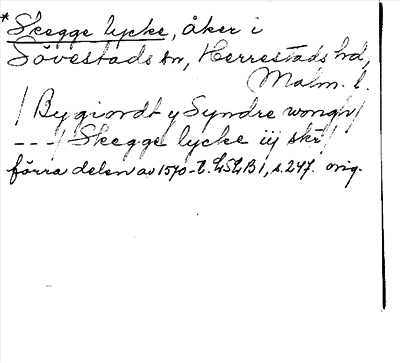 *Skegge lycke, åker i
Sövestads sn, Herrestads hd,
Malm. l.
/ Bygiordt y Syndre wongh /
---/ Skegge lycke iij skr /
förra delen av 1570-t. LSLB 1, s. 247. orig.